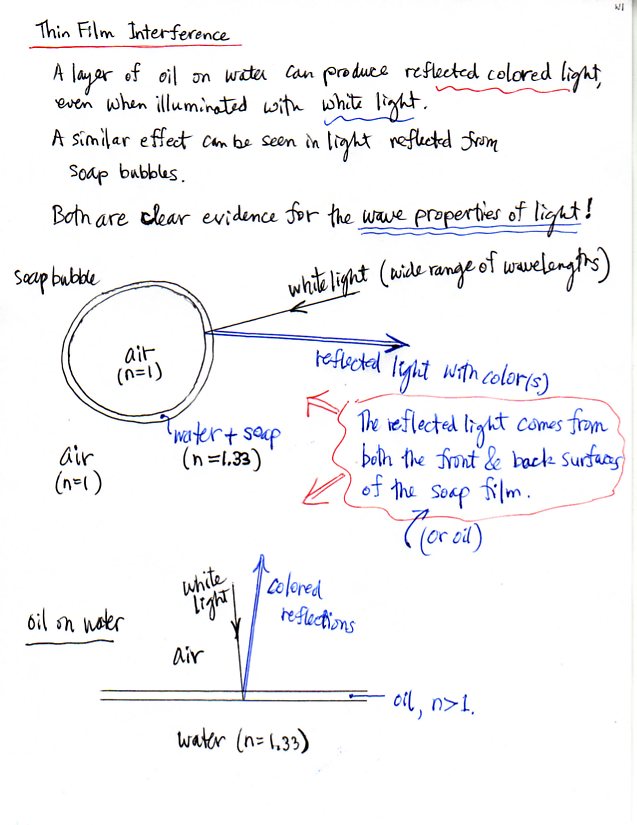 W1
Thin Film Interference
A layer of oil on water can produce reflected colored light,
even when illuminated with white light.
A similar effect can be seen in light reflected from
soap bubbles.
Both are clear evidence for the wave properties of light!
soap bubble
white light (wide range of wavelengths)
air
(n=1)
reflected light with color(s)
water + soap
(n=1.33)
air
(n=1)
The reflected light comes from
both the front & back surfaces
of the soap film.
(or oil)
white
light
colored
reflections
oil on water
air
oil, n>1.
water (n=1.33)